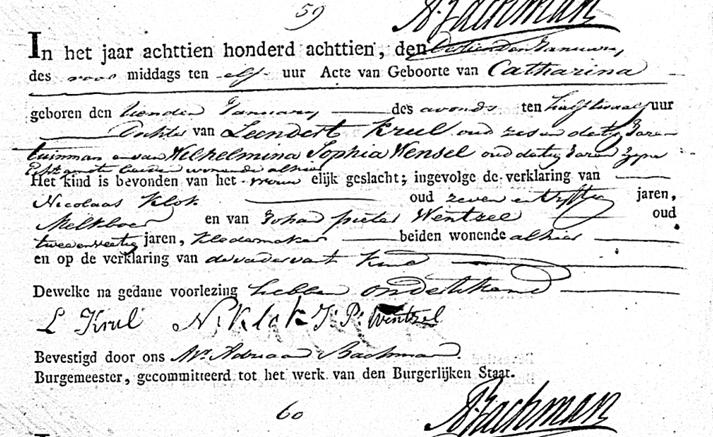 59
A. Bachman
In het jaar achttien honderd achttien, den January
des voor middags ten elf uur Acte van Geboorte van Catharina
geboren den tienden January des avonds ten half twaalf uur
Dochter van Leendert Krul oud zes en dertig Jaren
tuinman en van Wilhelmina Sophia Wensel oud dertig Jaren zyne
wonende alhier
Het kind is bevonden van het vrouw elijk geslacht; ingevolge de verklaring van
Nicolaas Klok oud zeven en vyftig jaren,
Melkboer en van Johan pieter Wentzel oud
twee en veertig jaren, Kledermaker beiden wonende alhier
en op de verklaring van de vader van t Kind
Dewelke na gedane voorlezing hebben ondertekend
L Krul N. Klok J. P. Wentzel
Bevestigd door ons Mr. Adriaan Bachman
Burgemeester, gecommitteerd tot het werk van den Burgerlijken Staat.
60
A. Bachman